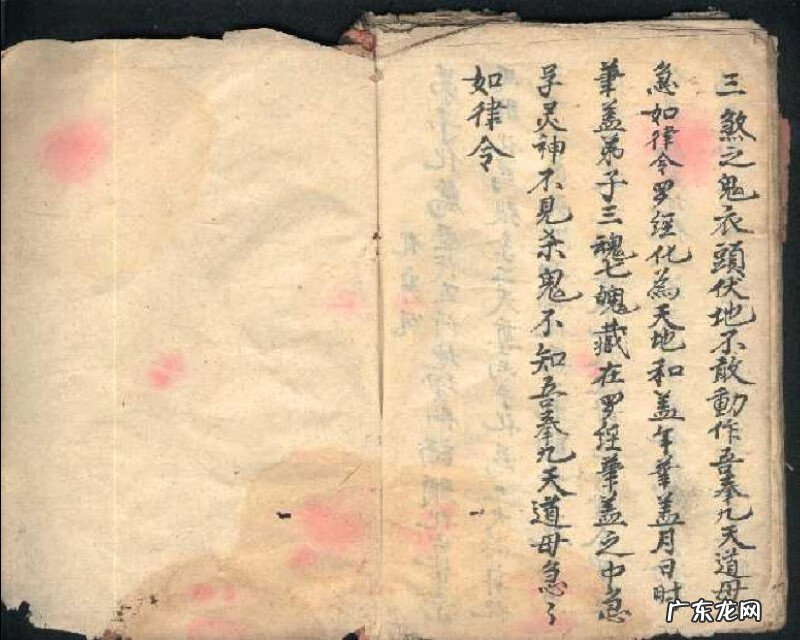 三煞之鬼衣頭伏地不敢動作吾奉九天道母
急如律令罗經化為天地和盖年華盖月日时
華盖弟子三魂七魄藏在罗經華盖之中急
孚灵神不見杀鬼不知吾奉九天道母急々
如律令
广东龙网